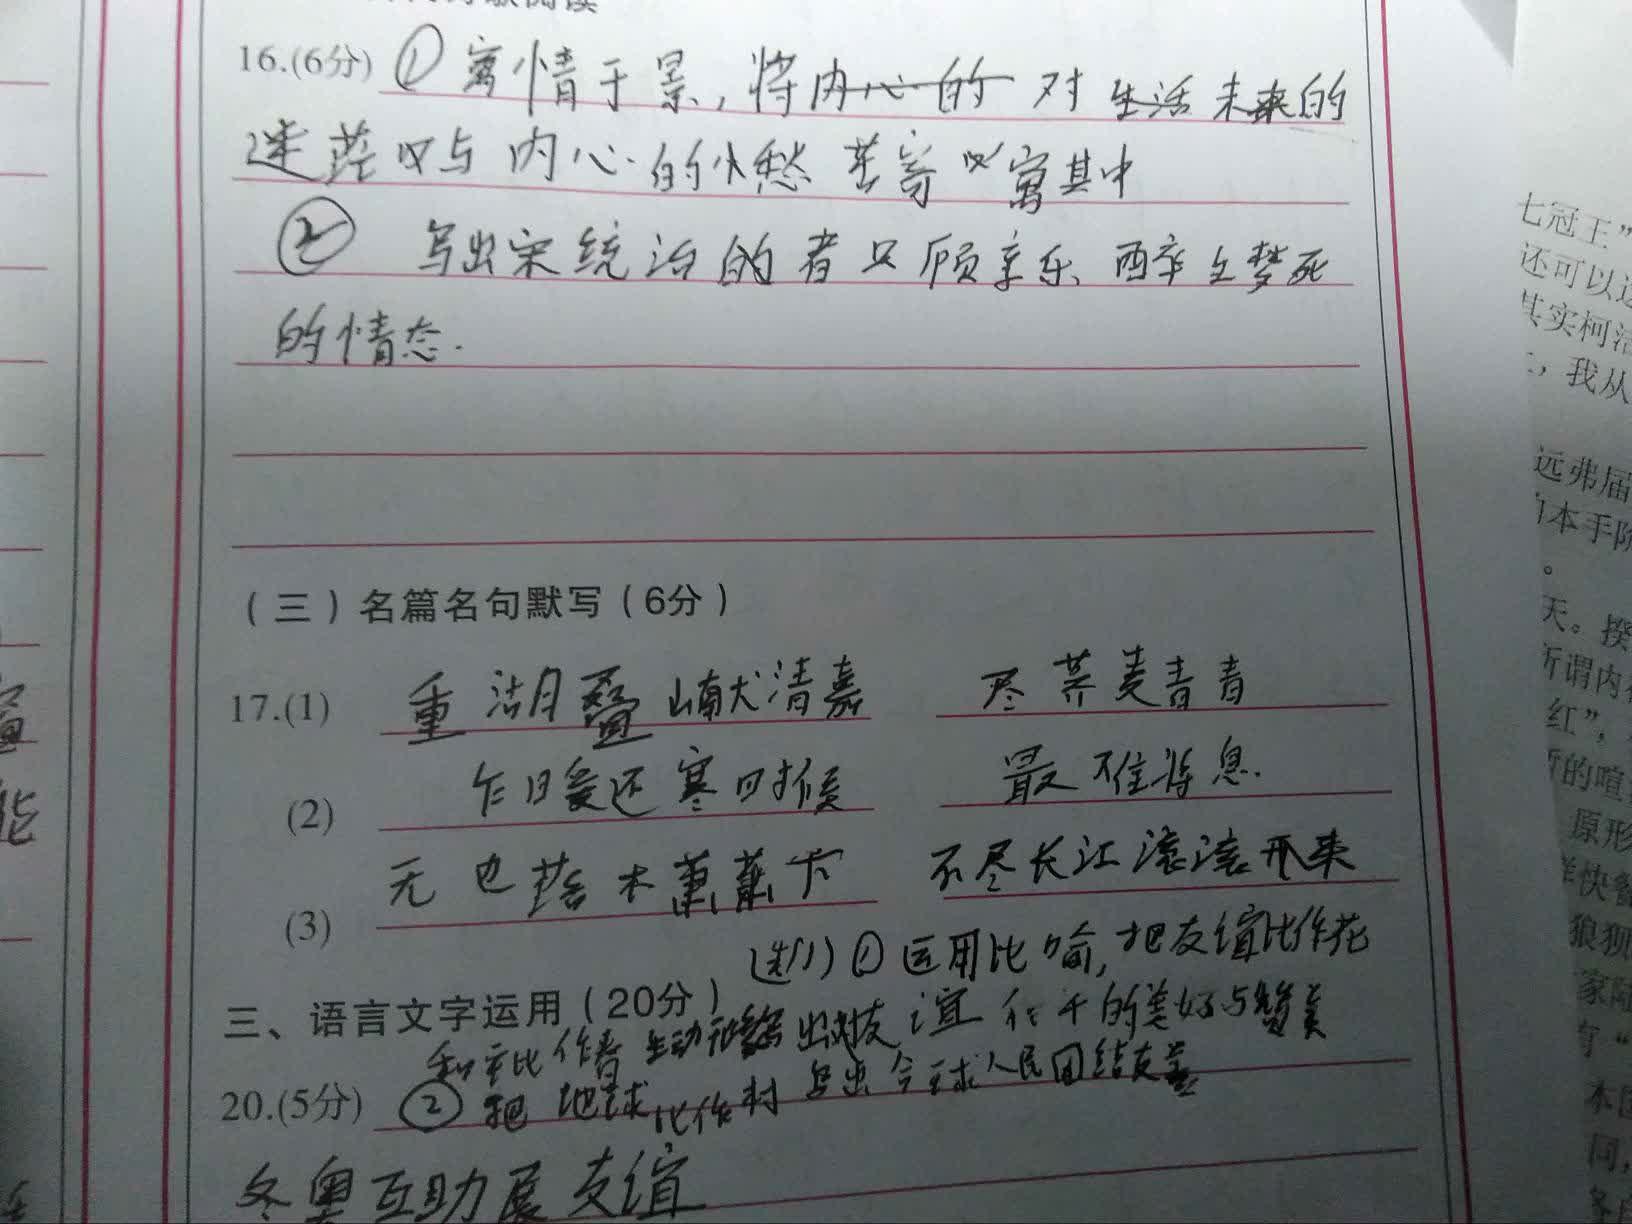 16.(6分) ① 寓情于景，将内心的 对 生活 未来的
迷茫 与 内心 的 愁苦寄 寓其中
② 写出宋统治的者只顾享乐、醉生梦死
的情态.
(三)名篇名句默写(6分)
17.(1) 重湖叠巘清嘉 尽荠麦青青
(2) 乍暖还寒时候 最不住将息.
(3) 无边落木萧萧下 不尽长江滚滚来
选(1) ① 运用比喻，把友谊比作花
三、语言文字运用(20分)
生动 出对友谊 的美好与赞美
20.(5分) ② 把 地球比作村 写出全球人民团结友善
冬奥互助展友谊
七冠王”
还可以
其实柯洁
，我从
远弗届
本手
。
天。揆
所谓内
红”，
的喧
原形
快餐
狼狈
家
本
同，
能